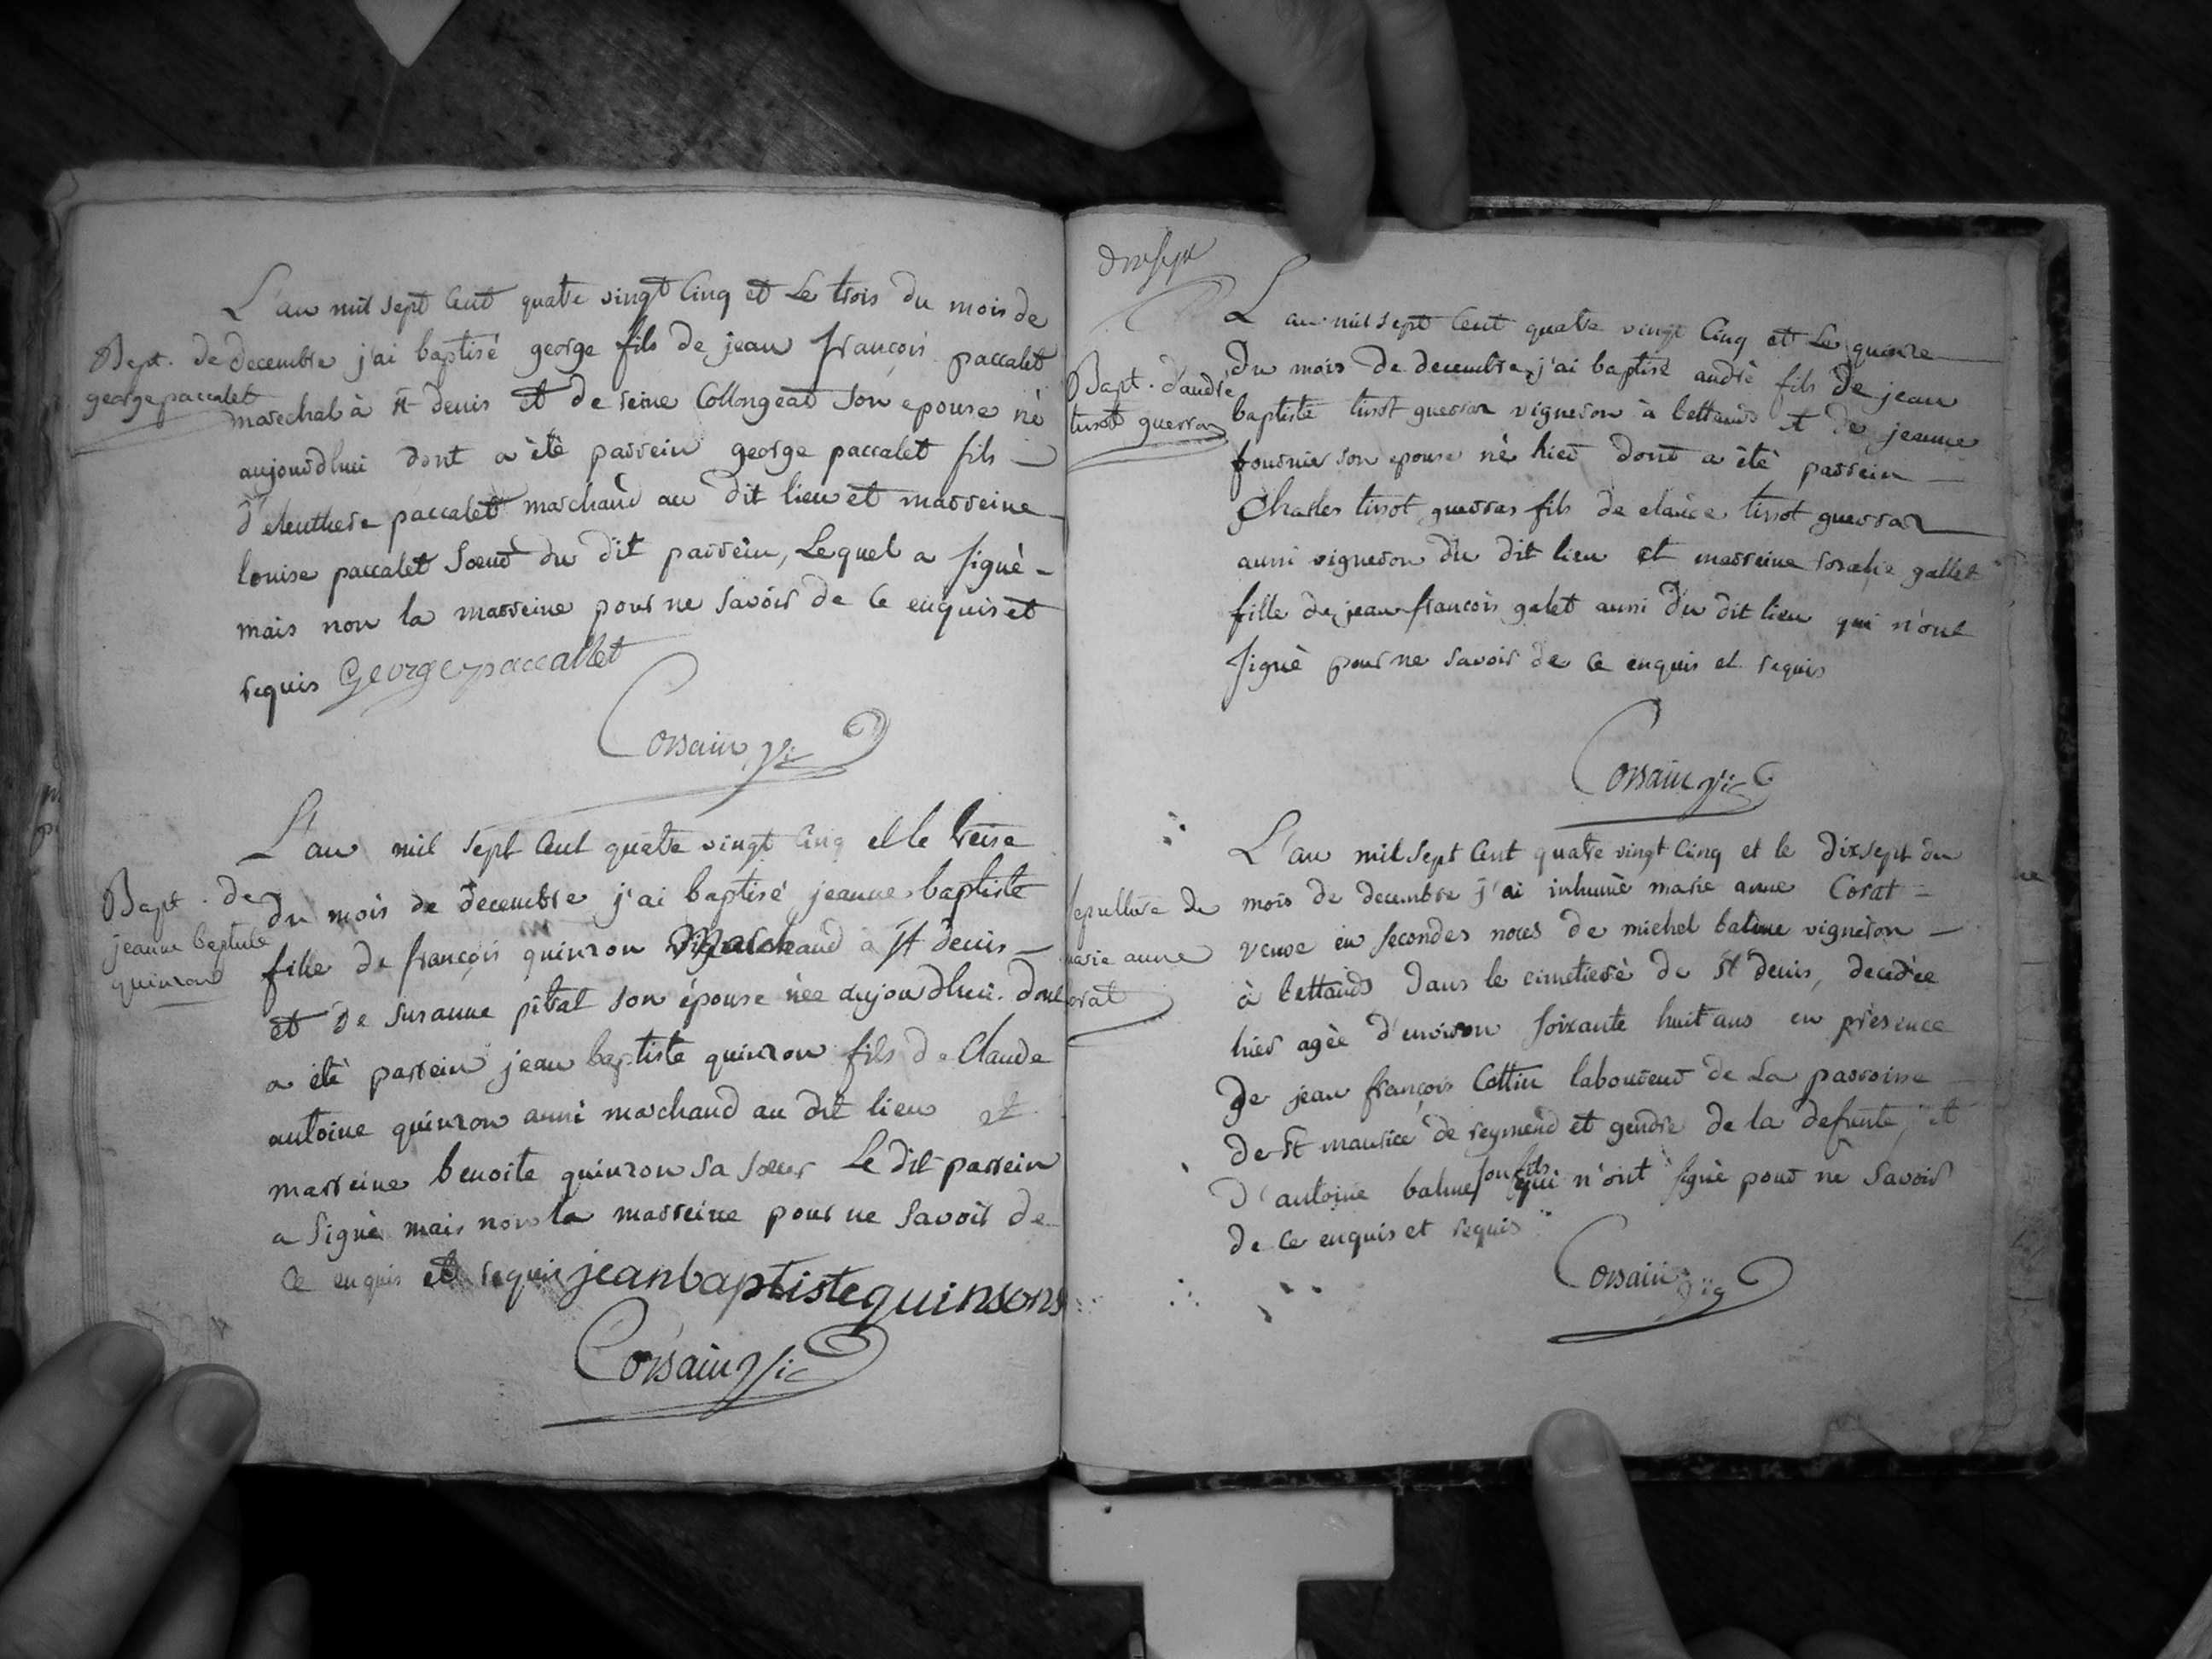 L'an mil sept cent quatre vingt cinq et le trois du mois de
Bapt. de
george paccalet
decembre j'ai baptisé george fils de jean françois paccalet
marechal à st denis et de reine Collongeat son epouse né
aujourdhui dont a été parrein george paccalet fils
d'eleuthere paccalet marchand au dit lieu et marreine
louise paccalet soeur du dit parrein, Lequel a signé
mais non la marreine pour ne savoir de ce enquis et
requis George paccallet
Corsain vic
L'an mil sept cent quatre vingt cinq et le treise
Bapt. de
jeanne baptiste
quinson
du mois de decembre j'ai baptisé jeanne baptiste
fille de françois quinson marchand à st denis
et de susanne pitrat son épouse née aujourdhui. dont
a été parrein jean baptiste quinson fils de Claude
antoine quinson aussi marchand au dit lieu et
marreine benoite quinson sa soeur Le dit parrein
a signé mais non la marreine pour ne savoir de
ce enquis et requis jeanbaptistequinsons
Corsain vic
L'an mil sept cent quatre vingt cinq et le quinze
Bapt. d'andré
tissot guerraz
du mois de decembre j'ai baptisé andré fils de jean
baptiste tissot guerraz vigneron à bettands et de jeanne
fournier son epouse né hier dont a été parrein
Charles tissot guerraz fils de claude tissot guerraz
aussi vigneron du dit lieu et marreine rosalie gallet
fille de jean françois galet aussi du dit lieu qui n'ont
signé pour ne savoir de ce enquis et requis
Corsain vic
L'an mil sept cent quatre vingt cinq et le dixsept du
sepulture de
marie anne
Corat
mois de decembre j'ai inhumé marie anne Corat
veuve en secondes noces de michel balme vigneron
à bettands dans le cimetiere de st denis, decedée
hier agée d'environ soixante huit ans en présence
de jean françois Cottin laboureur de La parroisse
de st maurice de reymend et gendre de la defunte, et
d'antoine balme son fils qui n'ont signé pour ne savoir
de ce enquis et requis
Corsain vic